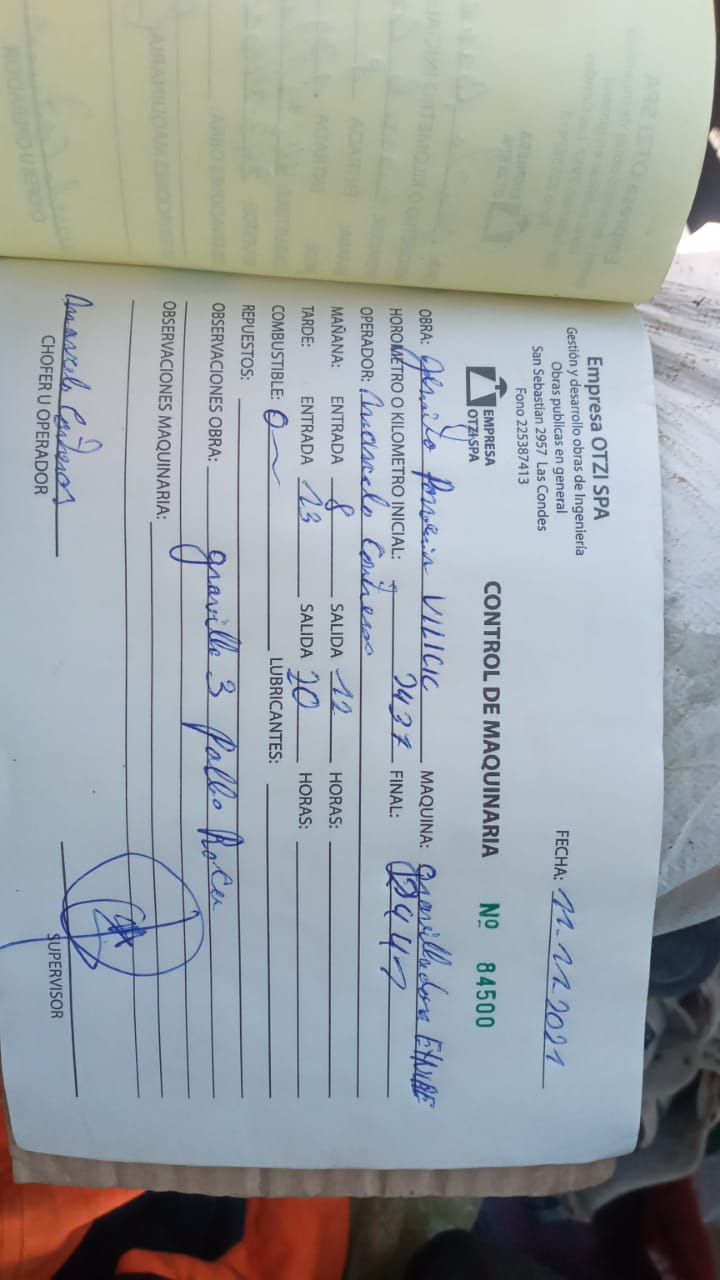 Empresa OTZI SPA
Gestión y desarrollo obras de Ingeniería
Obras publicas en general
San Sebastian 2957 Las Condes
Fono 225387413
FECHA: 11-11-2021
EMPRESA
OTZI SPA
CONTROL DE MAQUINARIA Nº 84500
OBRA: VILICIC MAQUINA: gravilladora
HOROMETRO O KILOMETRO INICIAL: 2437 FINAL: 2441
OPERADOR: Marcelo Contreras
MAÑANA: ENTRADA 8 SALIDA 12 HORAS:
TARDE: ENTRADA 13 SALIDA 20 HORAS:
COMBUSTIBLE: 0 LUBRICANTES:
REPUESTOS:
OBSERVACIONES OBRA: gravilla 3 Roca
OBSERVACIONES MAQUINARIA:
Marcelo Contreras
CHOFER U OPERADOR
SUPERVISOR